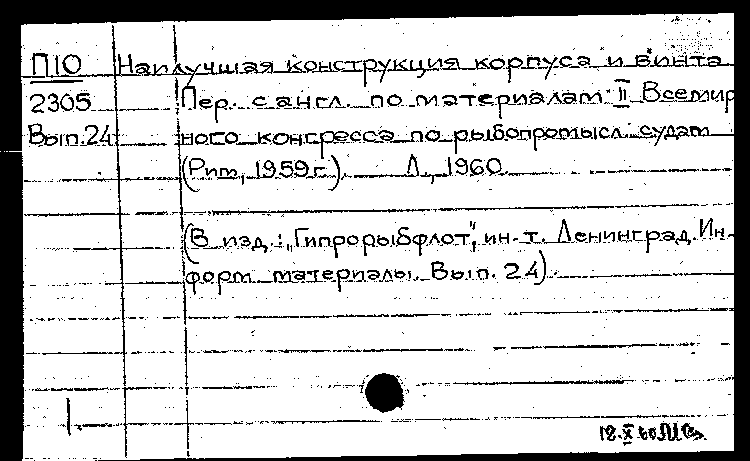 П10 Наилучшая конструкция корпуса и винта
2305 Пер. с англ. по материалам II Всемир
Вып.24 ного конгресса по рыбопромысл. судам
(Рим, 1959 г.). Л., 1960.
(В изд.: „Гипрорыбфлот", ин-т. Ленинград. Ин-
форм. материалы. Вып. 24).
12.X 60